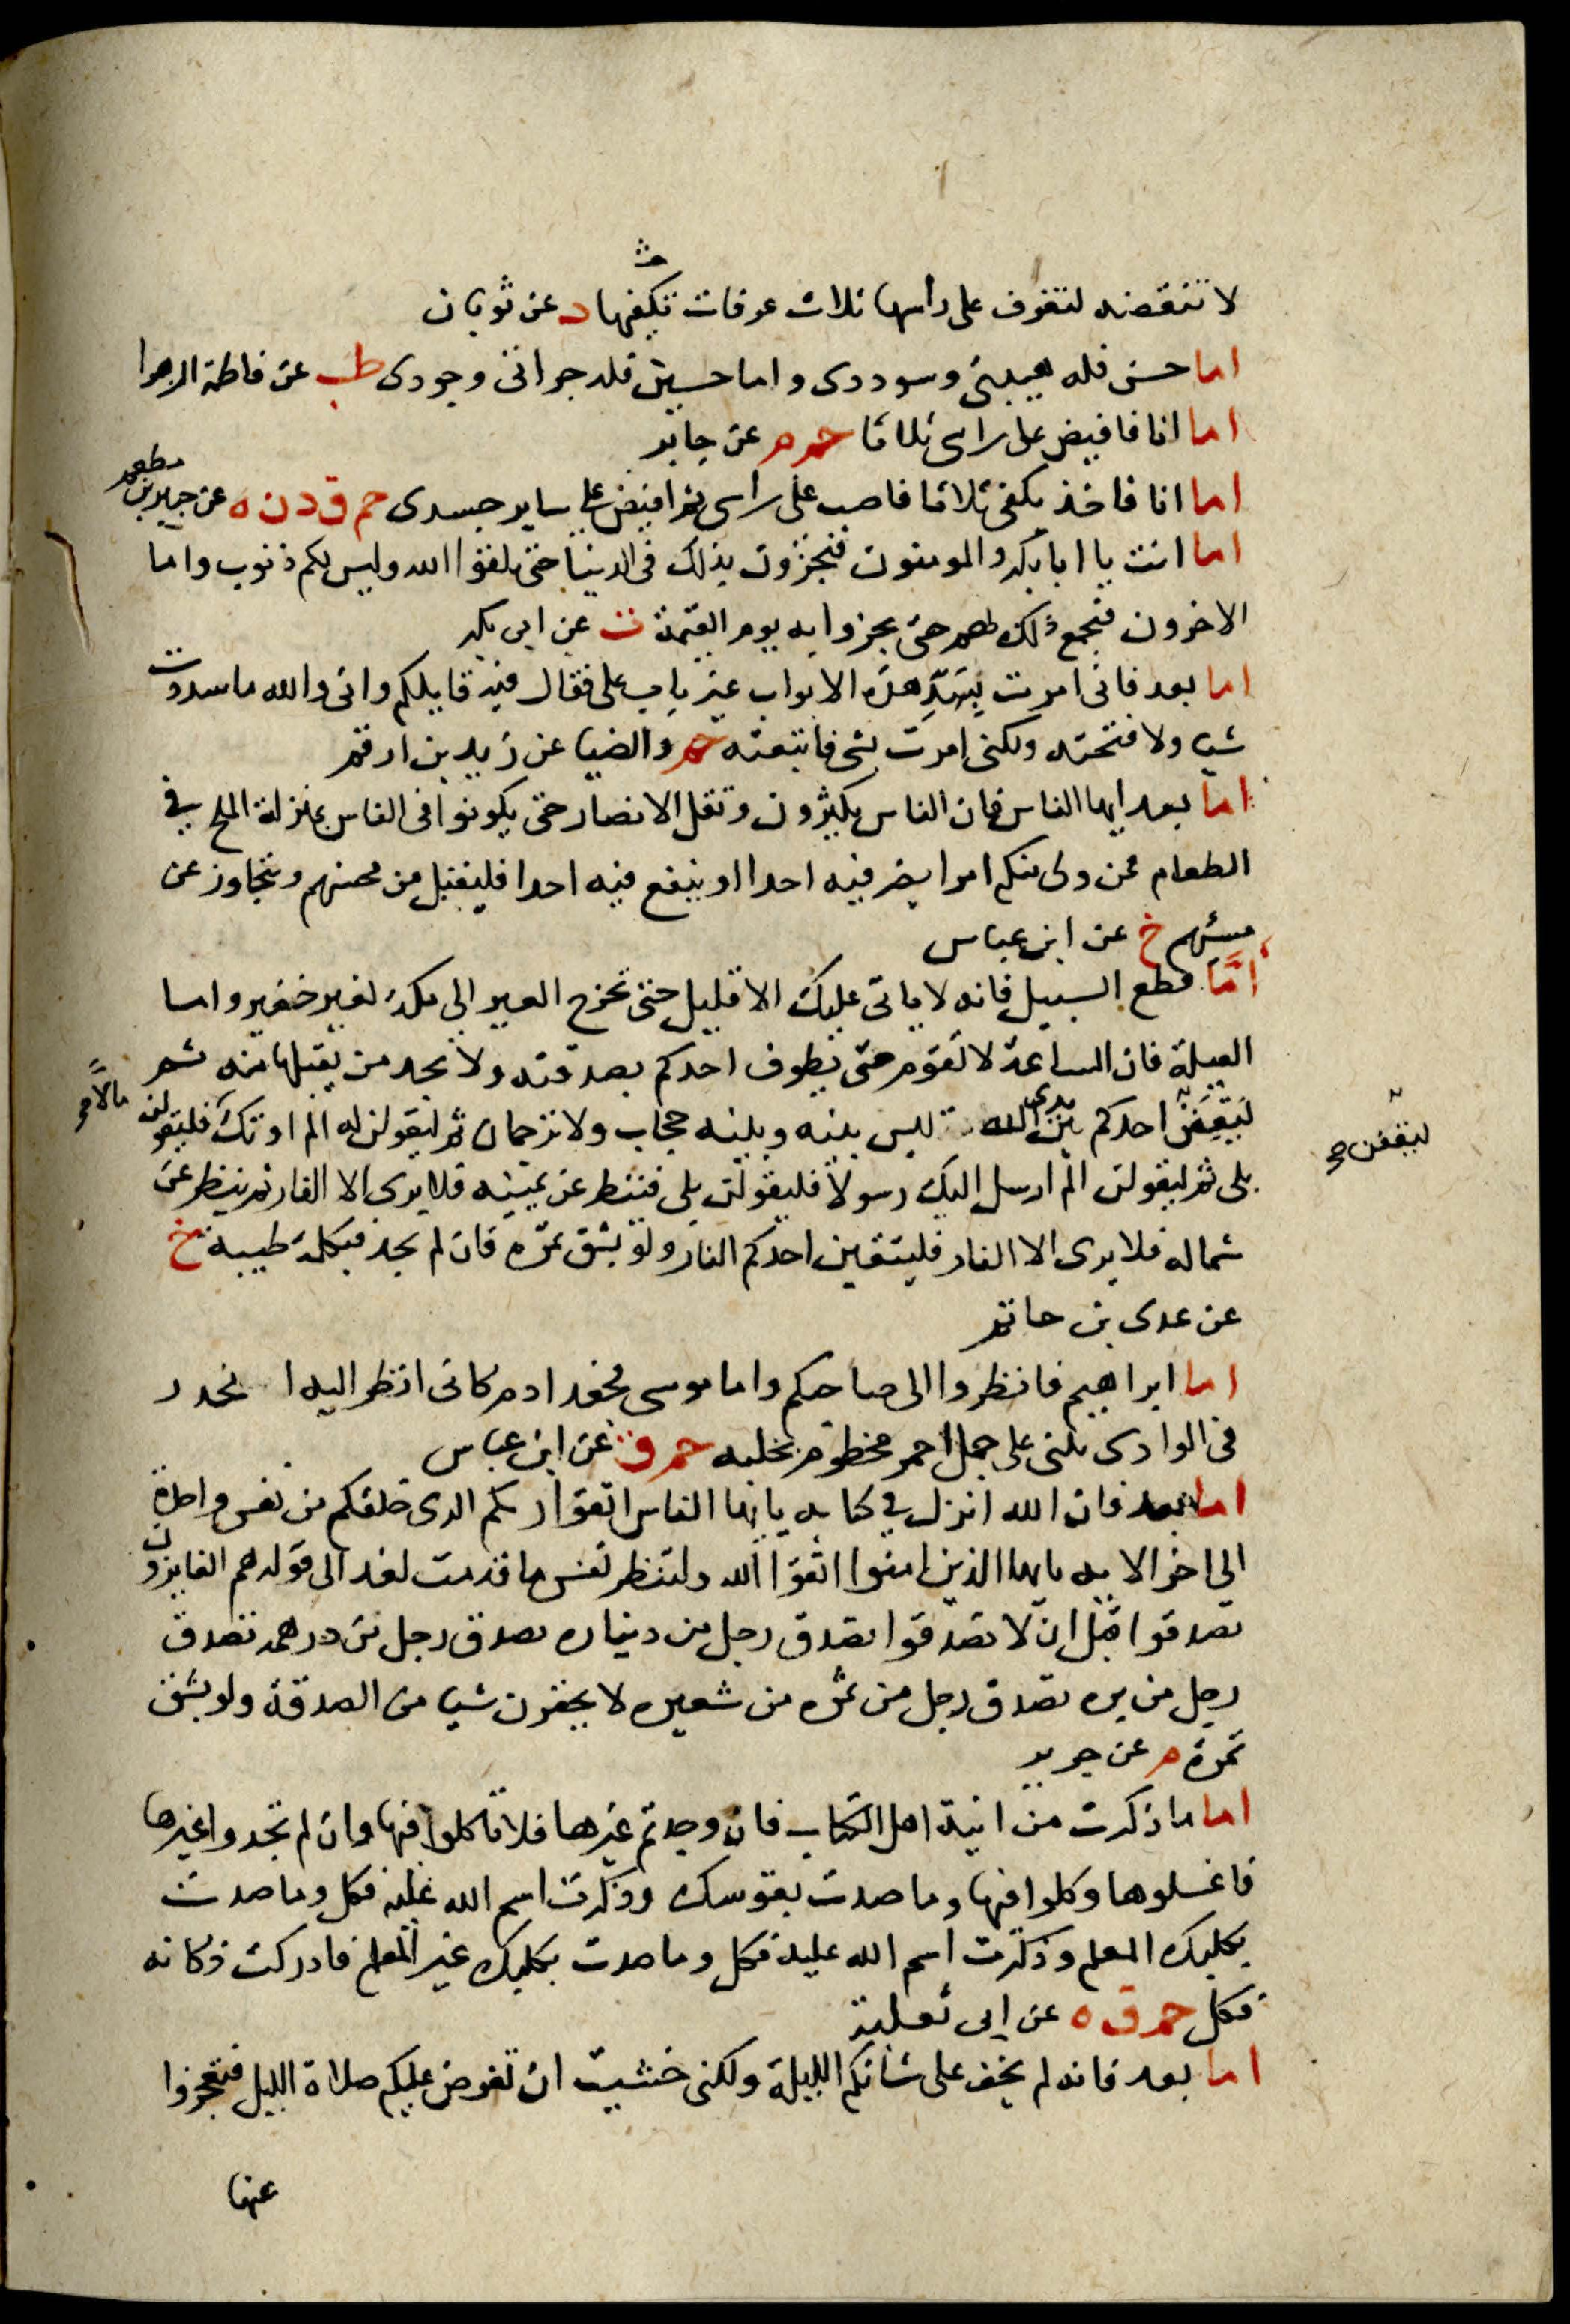 لا تنقضه لتغرف على راسها ثلاث غرفات تكفيها د عن ثوبان
اما حسن فله هيبتى وسوددى واما حسين فله جراتى وجودى طب عن فاطمة الزهرا
اما انا فافيض على راسى ثلاثا حم م عن جابر
اما انا فاخذ بكفى ثلاثا فاصب على راسى ثم افيض على ساير جسدى حم ق د ن ه عن جبير بن مطعم
اما انت يا ابا بكر والمومنون فتجزون بذلك فى الدنيا حتى تلقوا الله وليس لكم ذنوب واما
الاخرون فيجمع ذلك لهم حتى يجزوا به يوم القيمة ت عن ابى بكر
اما بعد فانى امرت بسد هذه الابواب غير باب على فقال فيه قايلكم وانى والله ما سددت
شيا ولا فتحته ولكنى امرت بشى فاتبعته حم والضيا عن زيد بن ارقم
اما بعد ايها الناس فان الناس يكثرون وتقل الانصار حتى يكونوا فى الناس بمنزلة الملح فى
الطعام فمن ولى منكم امرا يضر فيه احدا او ينفع فيه احدا فليقبل من محسنهم ويتجاوز عن
مسئهم خ عن ابن عباس
امّا قطع السبيل فانه لا ياتى عليك الا قليل حتى تخرج العير الى مكة بغير خفير واما
العيلة فان الساعة لا تقوم حتى يطوف احدكم بصدقته ولا يجد من يقبلها منه ثم
ليقفن احدكم بين يدى الله ليس بينه وبينه حجاب ولا ترجمان ثم ليقولن له الم اوتك مالا فليقولن
ليقفن صح
بلى ثم ليقولن الم ارسل اليك رسولا فليقولن بلى فينظر عن يمينه فلا يرى الا النار ثم ينظر عن
شماله فلا يرى الا النار فليتقين احدكم النار ولو بشق تمرة فان لم يجد فبكلمة طيبة خ
عن عدى بن حاتم
اما ابراهيم فانظروا الى صاحبكم واما موسى فجعد ادم كانى انظر اليه انحدر
فى الوادى يلبى على جمل احمر مخطوم بخلبه حم ق عن ابن عباس
اما بعد فان الله انزل فى كتابه يايها الناس اتقوا ربكم الذى خلقكم من نفس واحدة
الى اخر الايه يايها الذين امنوا اتقوا الله ولتنظر نفس ما قدمت لغد الى قوله هم الفايزون
تصدقوا قبل ان لا تصدقوا تصدق رجل من ديناره تصدق رجل من درهمه تصدق
رجل من بره تصدق رجل من تمره من شعيره لا يحقرن شيا من الصدقة ولو بشق
تمرة م عن جرير
اما ما ذكرت من انية اهل الكتاب فان وجدتم غيرها فلا تاكلوا فيها وان لم تجدوا غيرها
فاغسلوها وكلوا فيها وما صدت بقوسك وذكرت اسم الله عليه فكل وما صدت
بكلبك المعلم وذكرت اسم الله عليه فكل وما صدت بكلبك غير المعلم فادركت ذكاته
فكل حم ق ه عن ابى ثعلبة
اما بعد فانه لم يخف على شانكم الليلة ولكنى خشيت ان تفرض عليكم صلاة الليل فتعجزوا
عنها